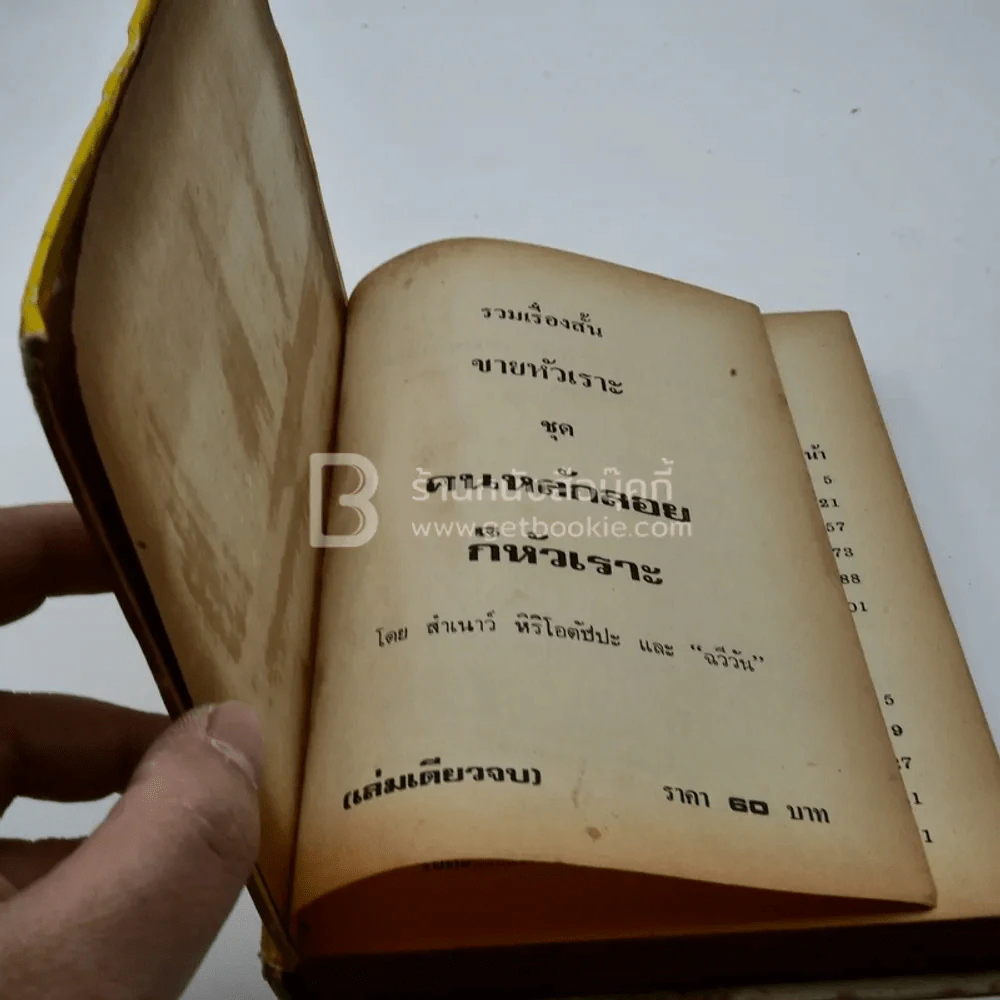 รวมเรื่องสั้น
ขายหัวเราะ
ชุด
คนหลักลอย
ก็หัวเราะ
โดย สำเนาว์ หิริโอตัปปะ และ "ฉวีวัน"
(เล่มเดียวจบ)
ราคา 60 บาท
ร้านหนังสือบุ๊คกี้
www.getbookie.com
5
21
57
73
88
5
9
27
1
1